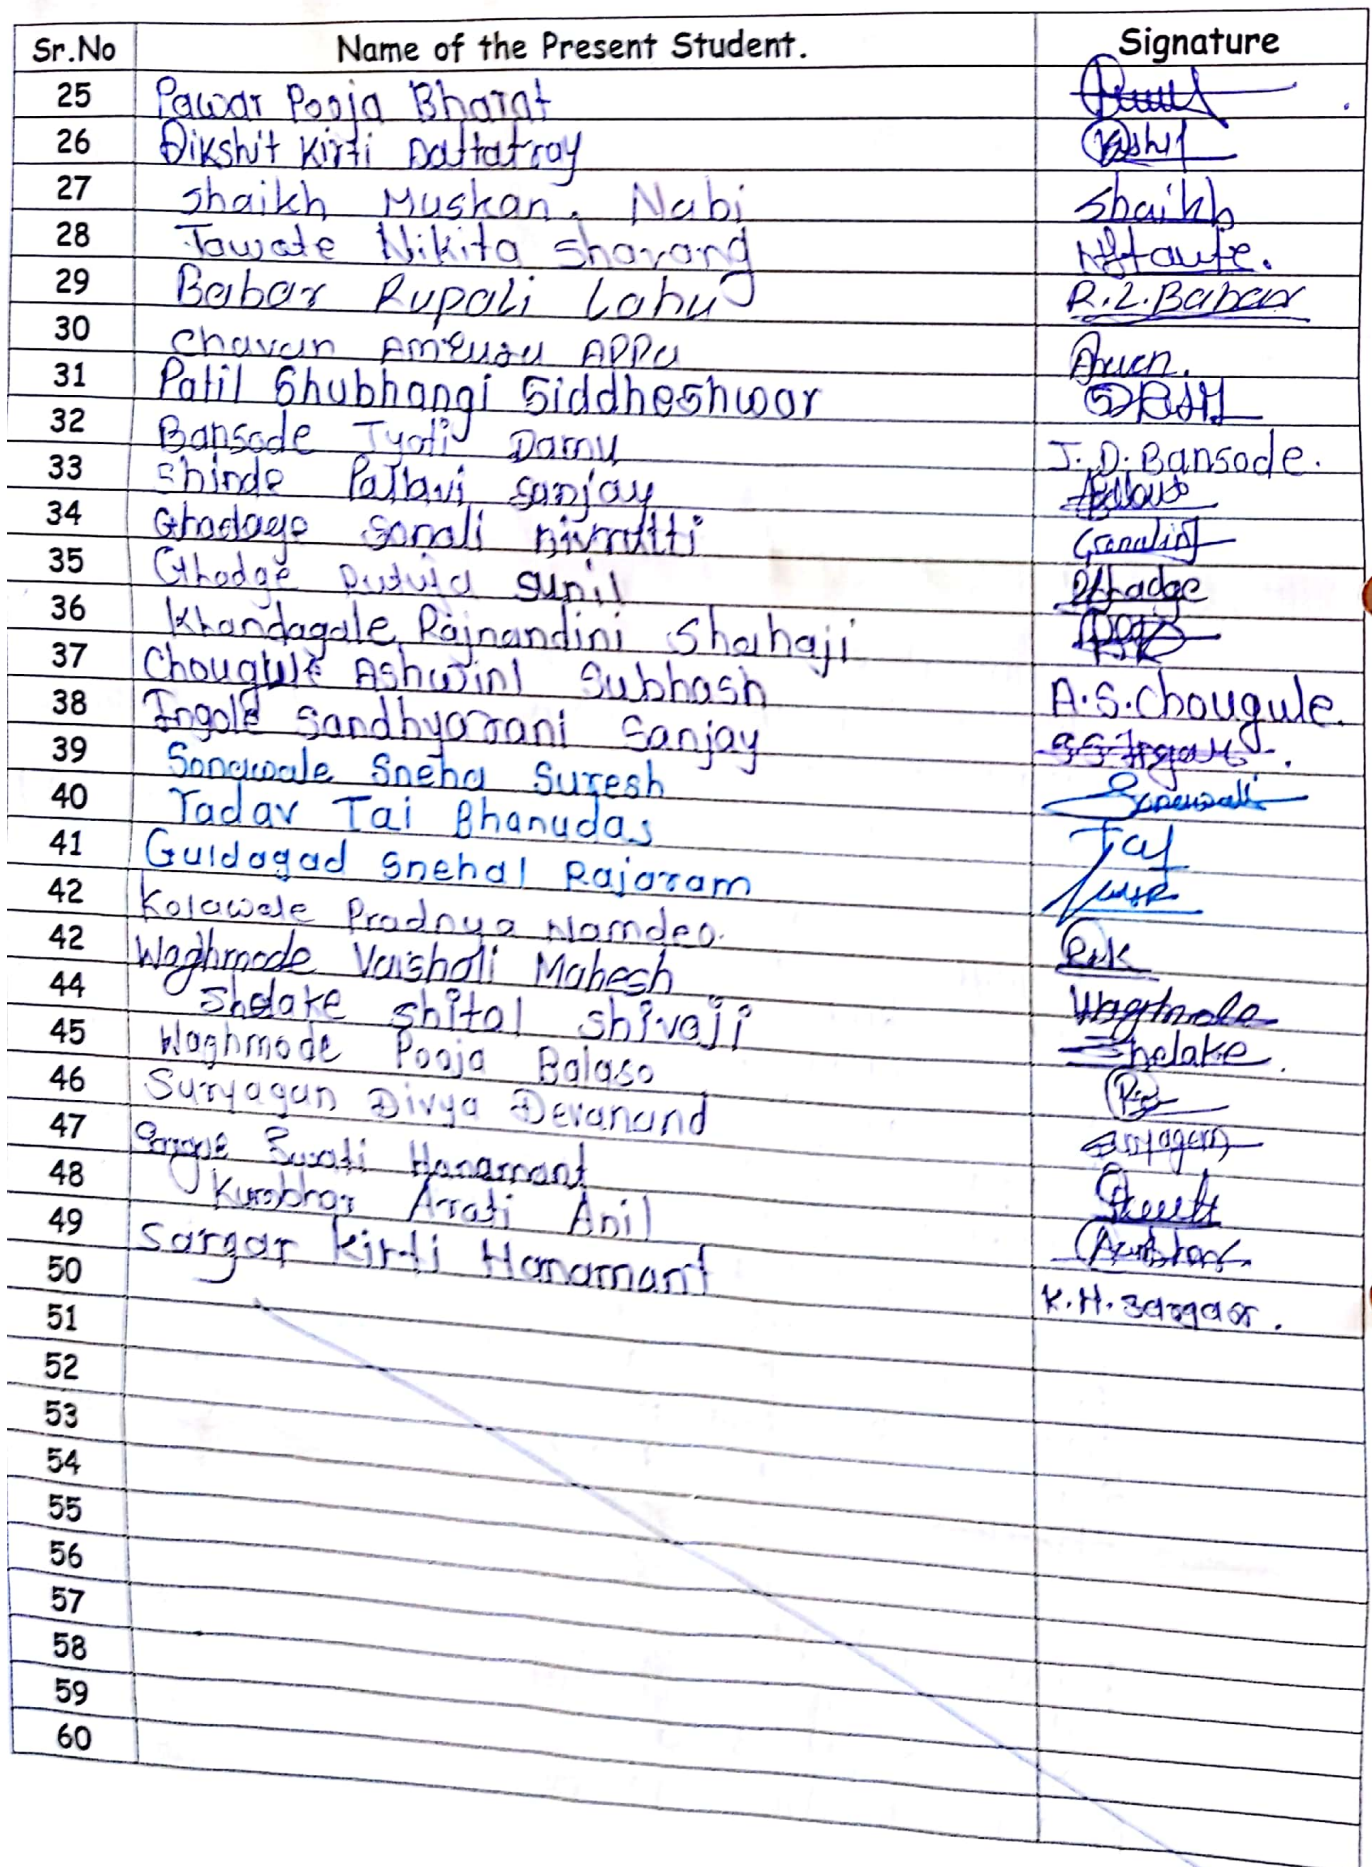 Sr.No Name of the Present Student. Signature
25 Pawar Pooja Bharat
26 Dikshit Kirti Dattatray
27 Shaikh Muskan. Nabi Shaikh
28 Tawate Nikita Sharang
29 Babar Rupali Lahu R.L.Babar
30 Chavan Amruta Appa
31 Patil Shubhangi Siddheshwar
32 Bansode Jyoti Damu J.D.Bansode.
33 Shinde Pallavi Sanjay
34 Ghadage Sonali nivrutti
35 Ghodge Rutuja Sunil
36 Khandagale Rajnandini Shahaji
37 Chougule Ashwini Subhash A.S.Chougule.
38 Ingole Sandhyarani Sanjay
39 Sonawale Sneha Suresh
40 Yadav Tai Bhanudas
41 Guldagad Snehal Rajaram
42 Kolawale Pradnya Namdeo.
42 Waghmode Vaishali Mahesh Waghmode
44 Shelake Shital Shivaji Shelake
45 Waghmode Pooja Balaso
46 Suryagan Divya Devanand
47 Swati Hanamant
48 Kumbhar Arati Anil
49 Sargar Kirti Hanamant K.H.Sargar.
50
51
52
53
54
55
56
57
58
59
60